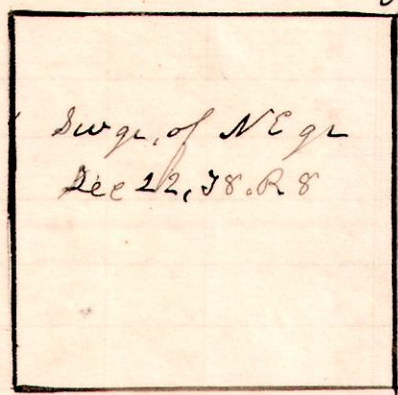 SW qr, of NE qr
Sec 22, T8. R 8